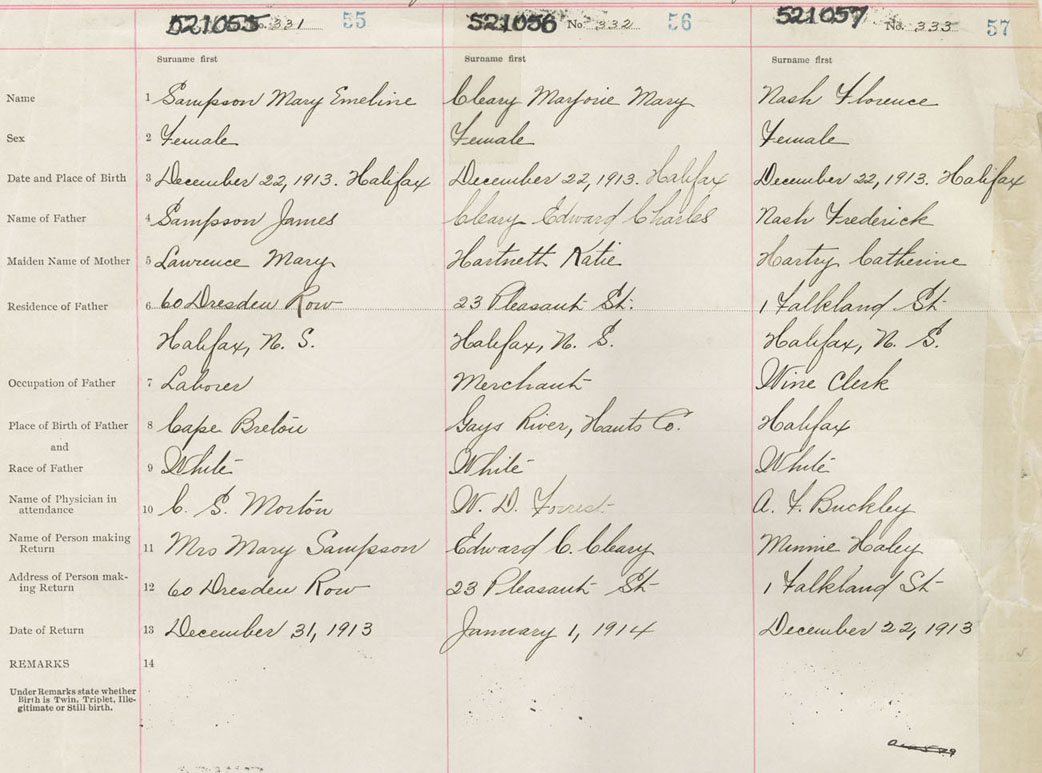 521055 No. 331 55 521056 No. 332 56 521057 No. 333 57
Surname first Surname first Surname first
Name 1 Sampson Mary Emeline Cleary Marjorie Mary Nash Florence
Sex 2 Female Female Female
Date and Place of Birth 3 December 22, 1913. Halifax December 22, 1913. Halifax December 22, 1913. Halifax
Name of Father 4 Sampson James Cleary Edward Charles Nash Frederick
Maiden Name of Mother 5 Lawrence Mary Hartnett Katie Hartry Catherine
Residence of Father 6 60 Dresden Row 23 Pleasant St. 1 Falkland St
Halifax, N. S. Halifax, N. S. Halifax, N. S.
Occupation of Father 7 Laborer Merchant Wine Clerk
Place of Birth of Father 8 Cape Breton Gays River, Hants Co. Halifax
and
Race of Father 9 White White White
Name of Physician in
attendance 10 C. S. Morton W. D. Forrest A. F. Buckley
Name of Person making
Return 11 Mrs Mary Sampson Edward C. Cleary Minnie Haley
Address of Person mak-
ing Return 12 60 Dresden Row 23 Pleasant St 1 Falkland St
Date of Return 13 December 31, 1913 January 1, 1914 December 22, 1913
REMARKS 14
Under Remarks state whether
Birth is Twin, Triplet, Ille-
gitimate or Still birth.